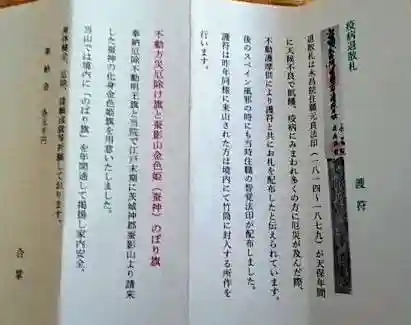 疫病退散札
護符
退散札は水晶院住職元良法印(一八一四~一八七九)が天保年間
に天候不良で飢饉、疫病にみまわれ多くの方に厄災が及んだ際、
不動護摩供により護符と共にお札を配布したと伝えられています。
後のスペイン風邪の時にも当時住職の智覚法印が配布しました。
護符は昨年同様に来山された方は境内にて竹筒に封入する所作を
行います。
不動方災厄除け旗と蚕影山金色姫(蚕神)のぼり旗
奉納厄除不動明王旗と当院で江戸末期に茨城神郡蚕影山より請来
した蚕神の化身金色姫旗を用意いたしました。
当山では境内に「のぼり旗」を年間通して掲揚し家内安全、
身体健全、厄除、諸願成就等祈願して居ります。
奉納金
合掌